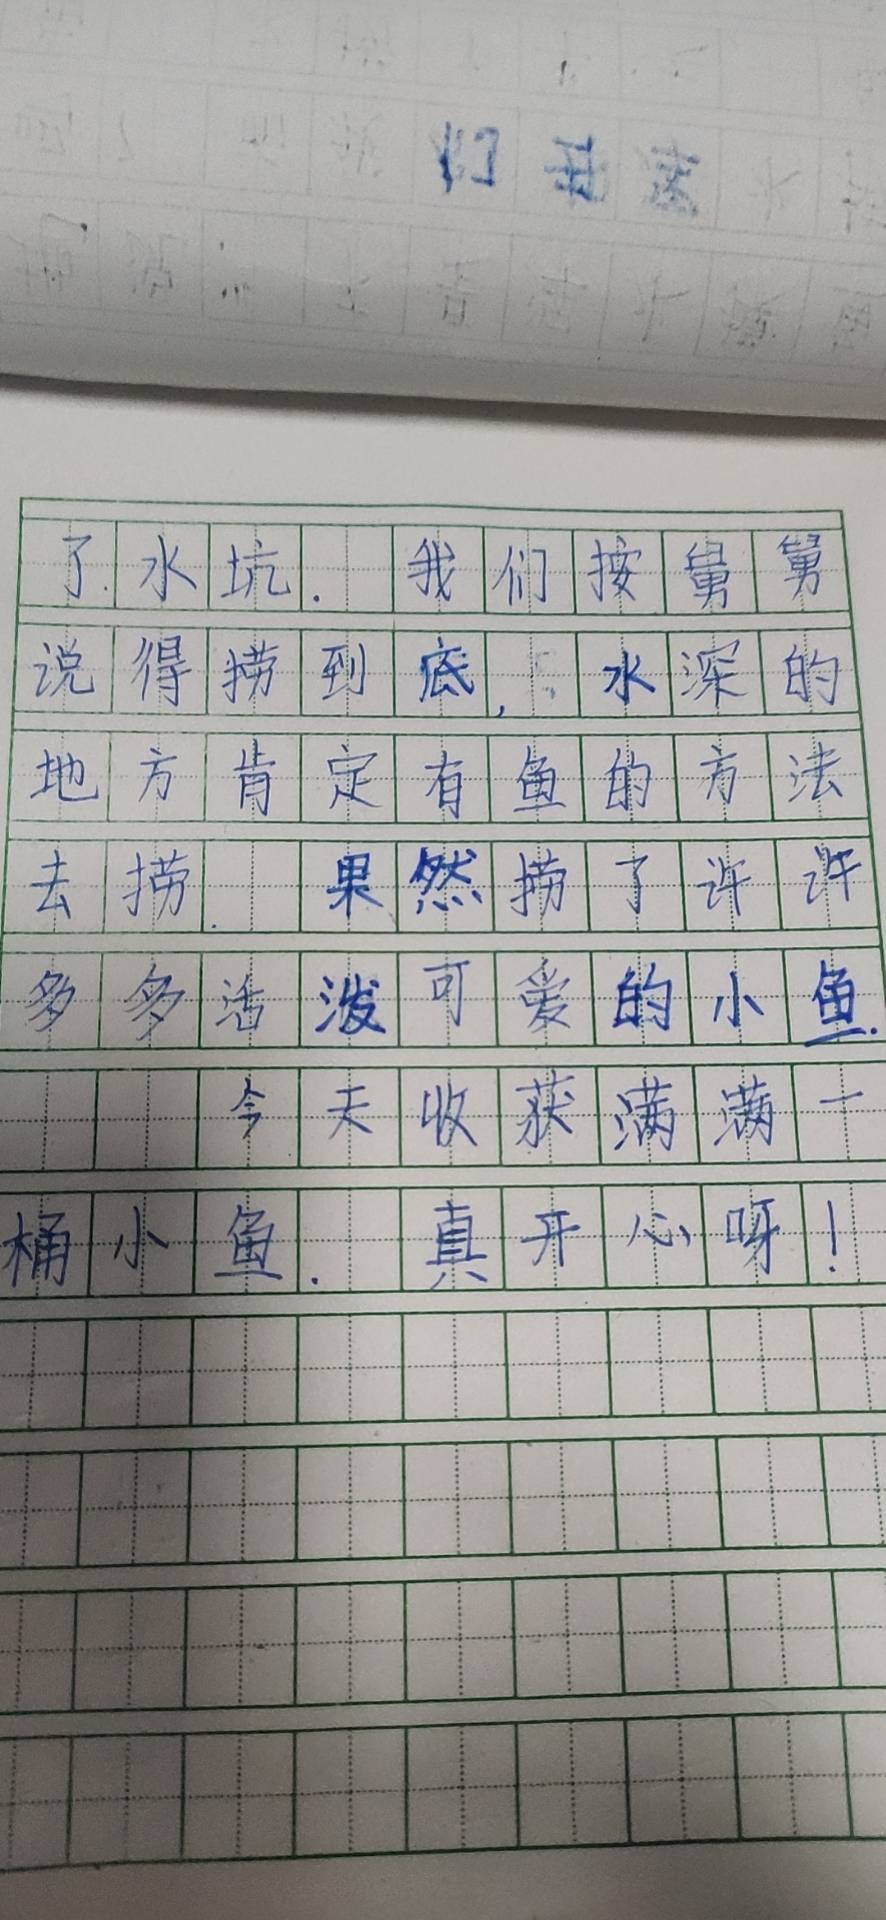 们
了水坑. 我们按舅舅
说得捞到底, 水深的
地方肯定有鱼的方法
去捞. 果然捞了许许
多多活泼可爱的小鱼.
今天收获满满一
桶小鱼. 真开心呀!